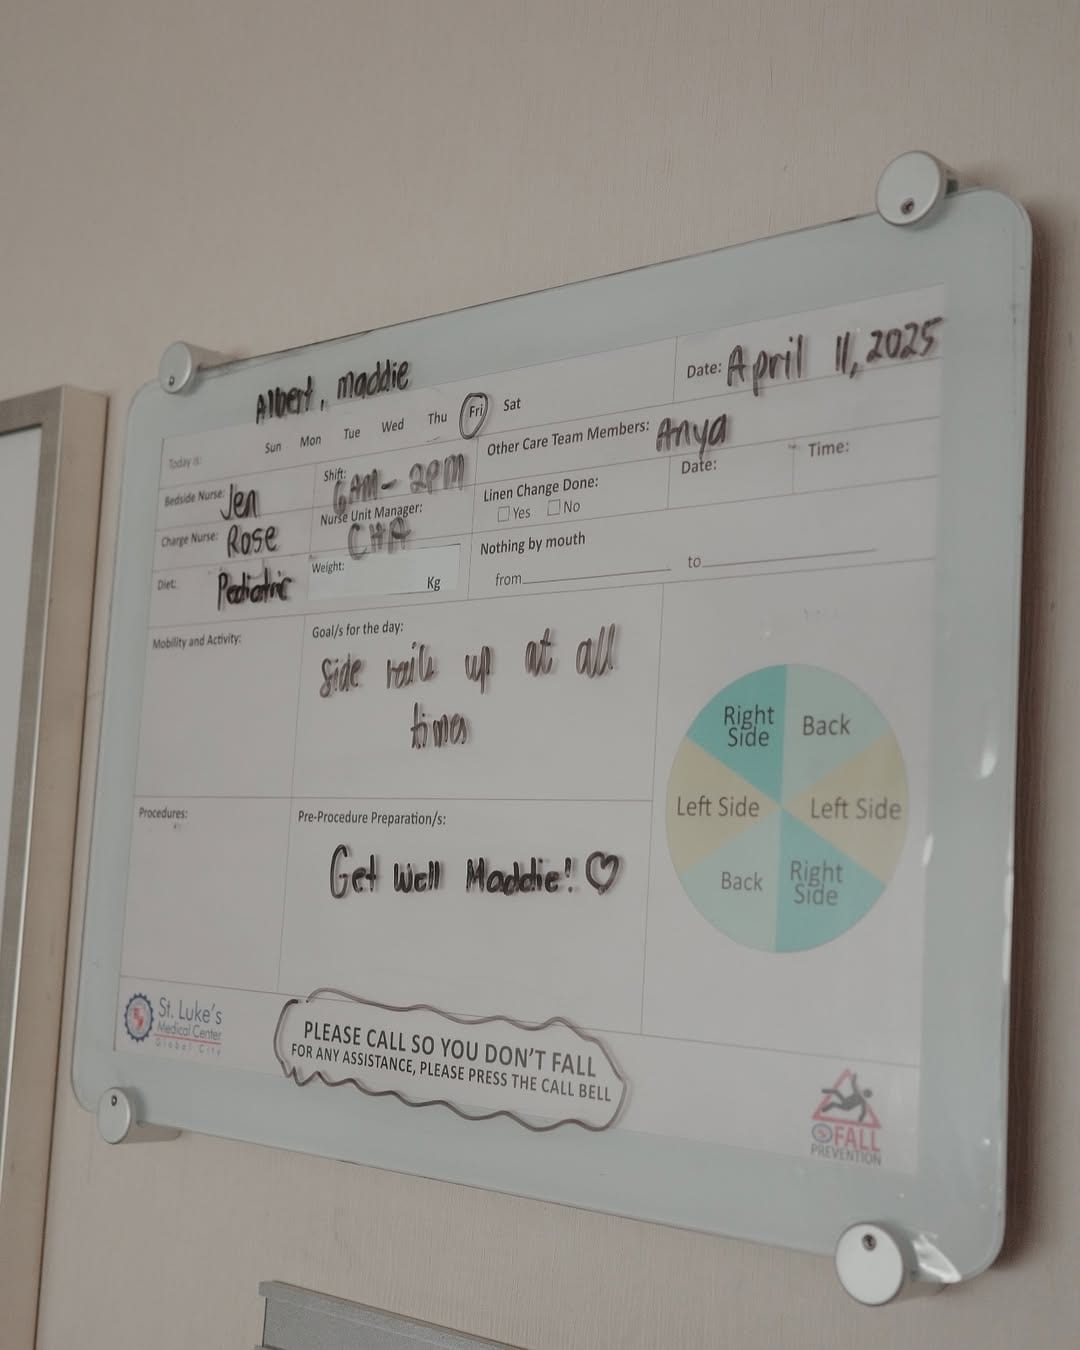 Albert, maddie
Today is: Sun Mon Tue Wed Thu Fri Sat
Date: April 11, 2025
Bedside Nurse: Jen
Shift: 6AM - 2PM
Other Care Team Members: Anya
Charge Nurse: Rose
Nurse Unit Manager: CHA
Linen Change Done:
Yes No
Date:
Time:
Diet: Pediatric
Weight: Kg
Nothing by mouth
from to
Mobility and Activity:
Goal/s for the day:
Side rails up at all
times
Procedures:
Pre-Procedure Preparation/s:
Get Well Maddie!
Right
Side
Back
Left Side
Left Side
Back
Right
Side
St. Luke's
Medical Center
Global City
PLEASE CALL SO YOU DON'T FALL
FOR ANY ASSISTANCE, PLEASE PRESS THE CALL BELL
FALL
PREVENTION